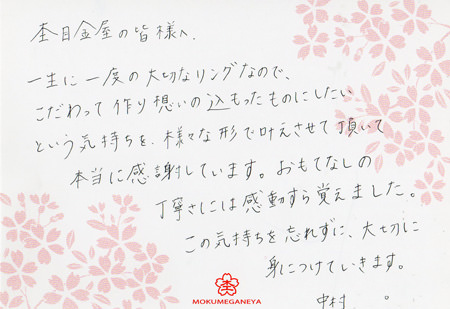 杢目金屋の皆様へ、
一生に一度の大切なリングなので、
こだわって作り想いの込もったものにしたい
という気持ちを、様々な形で叶えさせて頂いて
本当に感謝しています。おもてなしの
丁寧さには感動すら覚えました。
この気持ちを忘れずに、大切に
身につけていきます。
中村 。
MOKUMEGANEYA